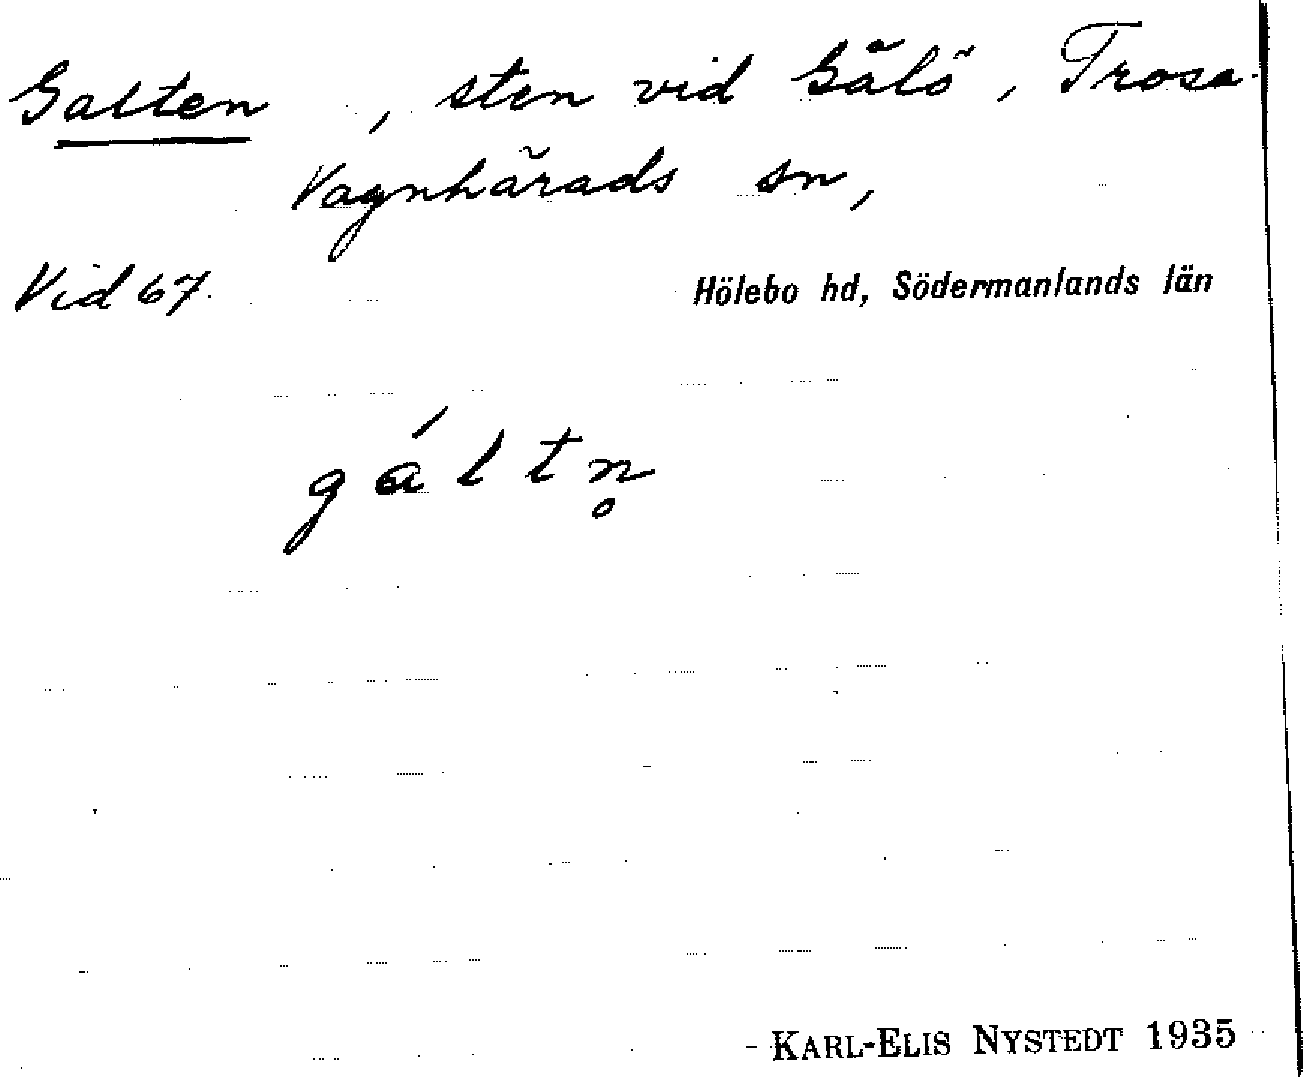 Galten, sten vid Gålö, Trosa-
Vagnhärads sn,
Vid 67. Hölebo hd, Södermanlands län
gáltn̥
KARL-ELIS NYSTEDT 1935